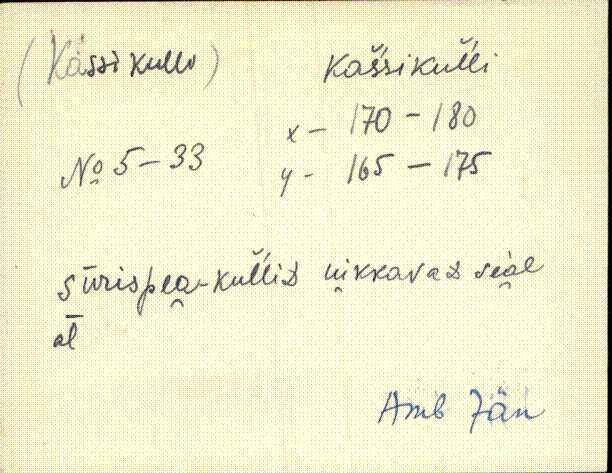 (Kässikullu) Kaśsikuĺli
No 5-33 x - 170 - 180
y - 165 - 175
sūrispea-kuĺlid uikkavad seal
al
Amb Jän